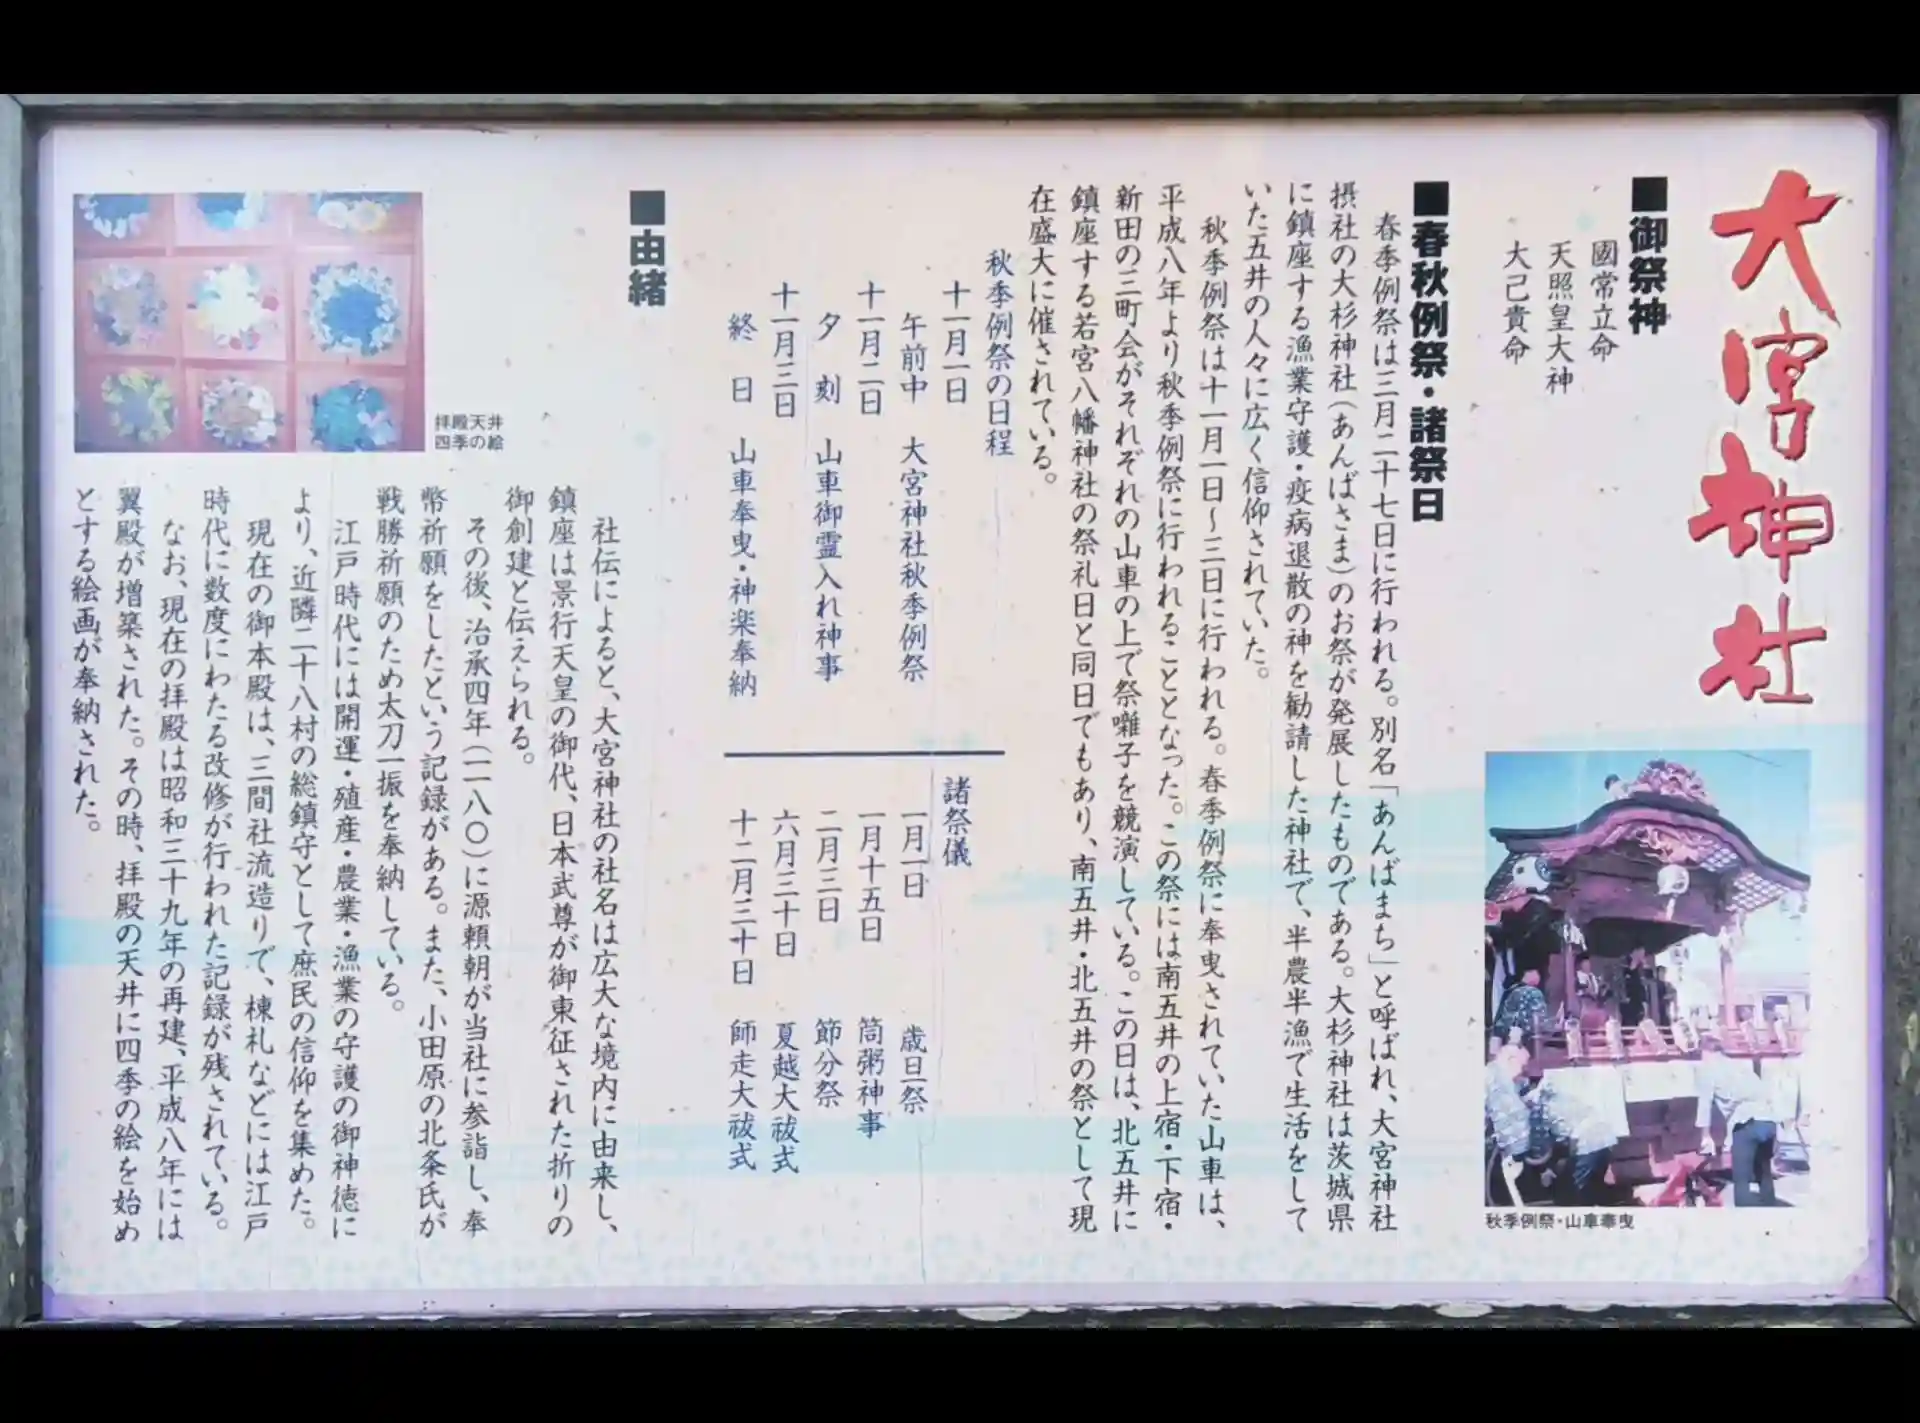 大宮神社
■御祭神
國常立命
天照皇大神
大己貴命
■春秋例祭・諸祭日
春季例祭は三月二十七日に行われる。別名「あんばまち」と呼ばれ、大宮神社
摂社の大杉神社（あんばさま）のお祭が発展したものである。大杉神社は茨城県
に鎮座する漁業守護・疫病退散の神を勧請した神社で、半農半漁で生活をして
いた五井の人々に広く信仰されていた。
秋季例祭は十一月一日～三日に行われる。春季例祭に奉曳されていた山車は、
平成八年より秋季例祭に行われることとなった。この祭には南五井の上宿・下宿・
新田の三町会がそれぞれの山車の上で祭囃子を競演している。この日は、北五井に
鎮座する若宮八幡神社の祭礼日と同日でもあり、南五井・北五井の祭として現
在盛大に催されている。
秋季例祭の日程
十一月一日
午前中 大宮神社秋季例祭
十一月二日
夕 刻 山車御霊入れ神事
十一月三日
終 日 山車奉曳・神楽奉納
諸祭儀
一月一日 歳旦祭
一月十五日 筒粥神事
二月三日 節分祭
六月三十日 夏越大祓式
十二月三十日 師走大祓式
秋季例祭・山車奉曳
■由緒
社伝によると、大宮神社の社名は広大な境内に由来し、
鎮座は景行天皇の御代、日本武尊が御東征された折りの
御創建と伝えられる。
その後、治承四年（一一八〇）に源頼朝が当社に参詣し、奉
幣祈願をしたという記録がある。また、小田原の北条氏が
戦勝祈願のため太刀一振を奉納している。
江戸時代には開運・殖産・農業・漁業の守護の御神徳に
より、近隣二十八村の総鎮守として庶民の信仰を集めた。
現在の御本殿は、三間社流造りで、棟札などには江戸
時代に数度にわたる改修が行われた記録が残されている。
なお、現在の拝殿は昭和三十九年の再建、平成八年には
翼殿が増築された。その時、拝殿の天井に四季の絵を始め
とする絵画が奉納された。
拝殿天井
四季の絵